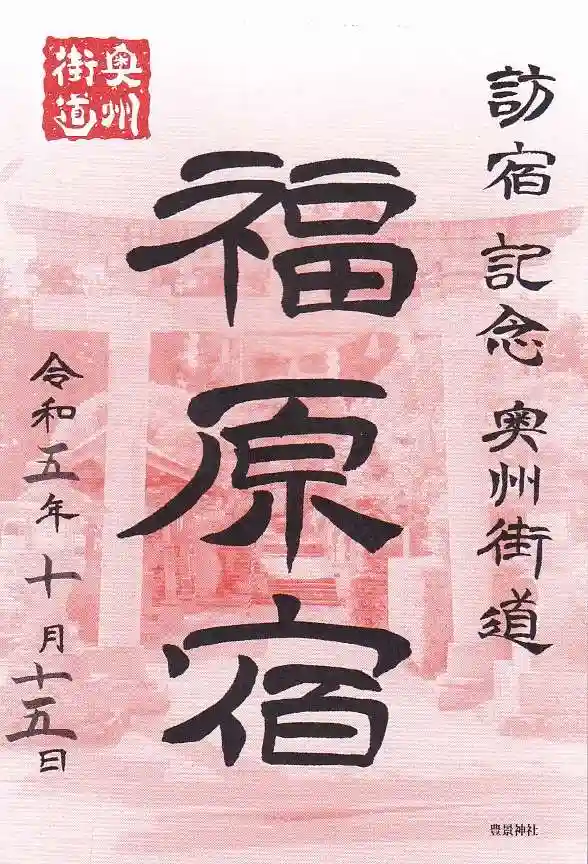 訪宿 記念 奥州街道
奥州
街道
福原宿
令和五年 十月十五日
豊景神社